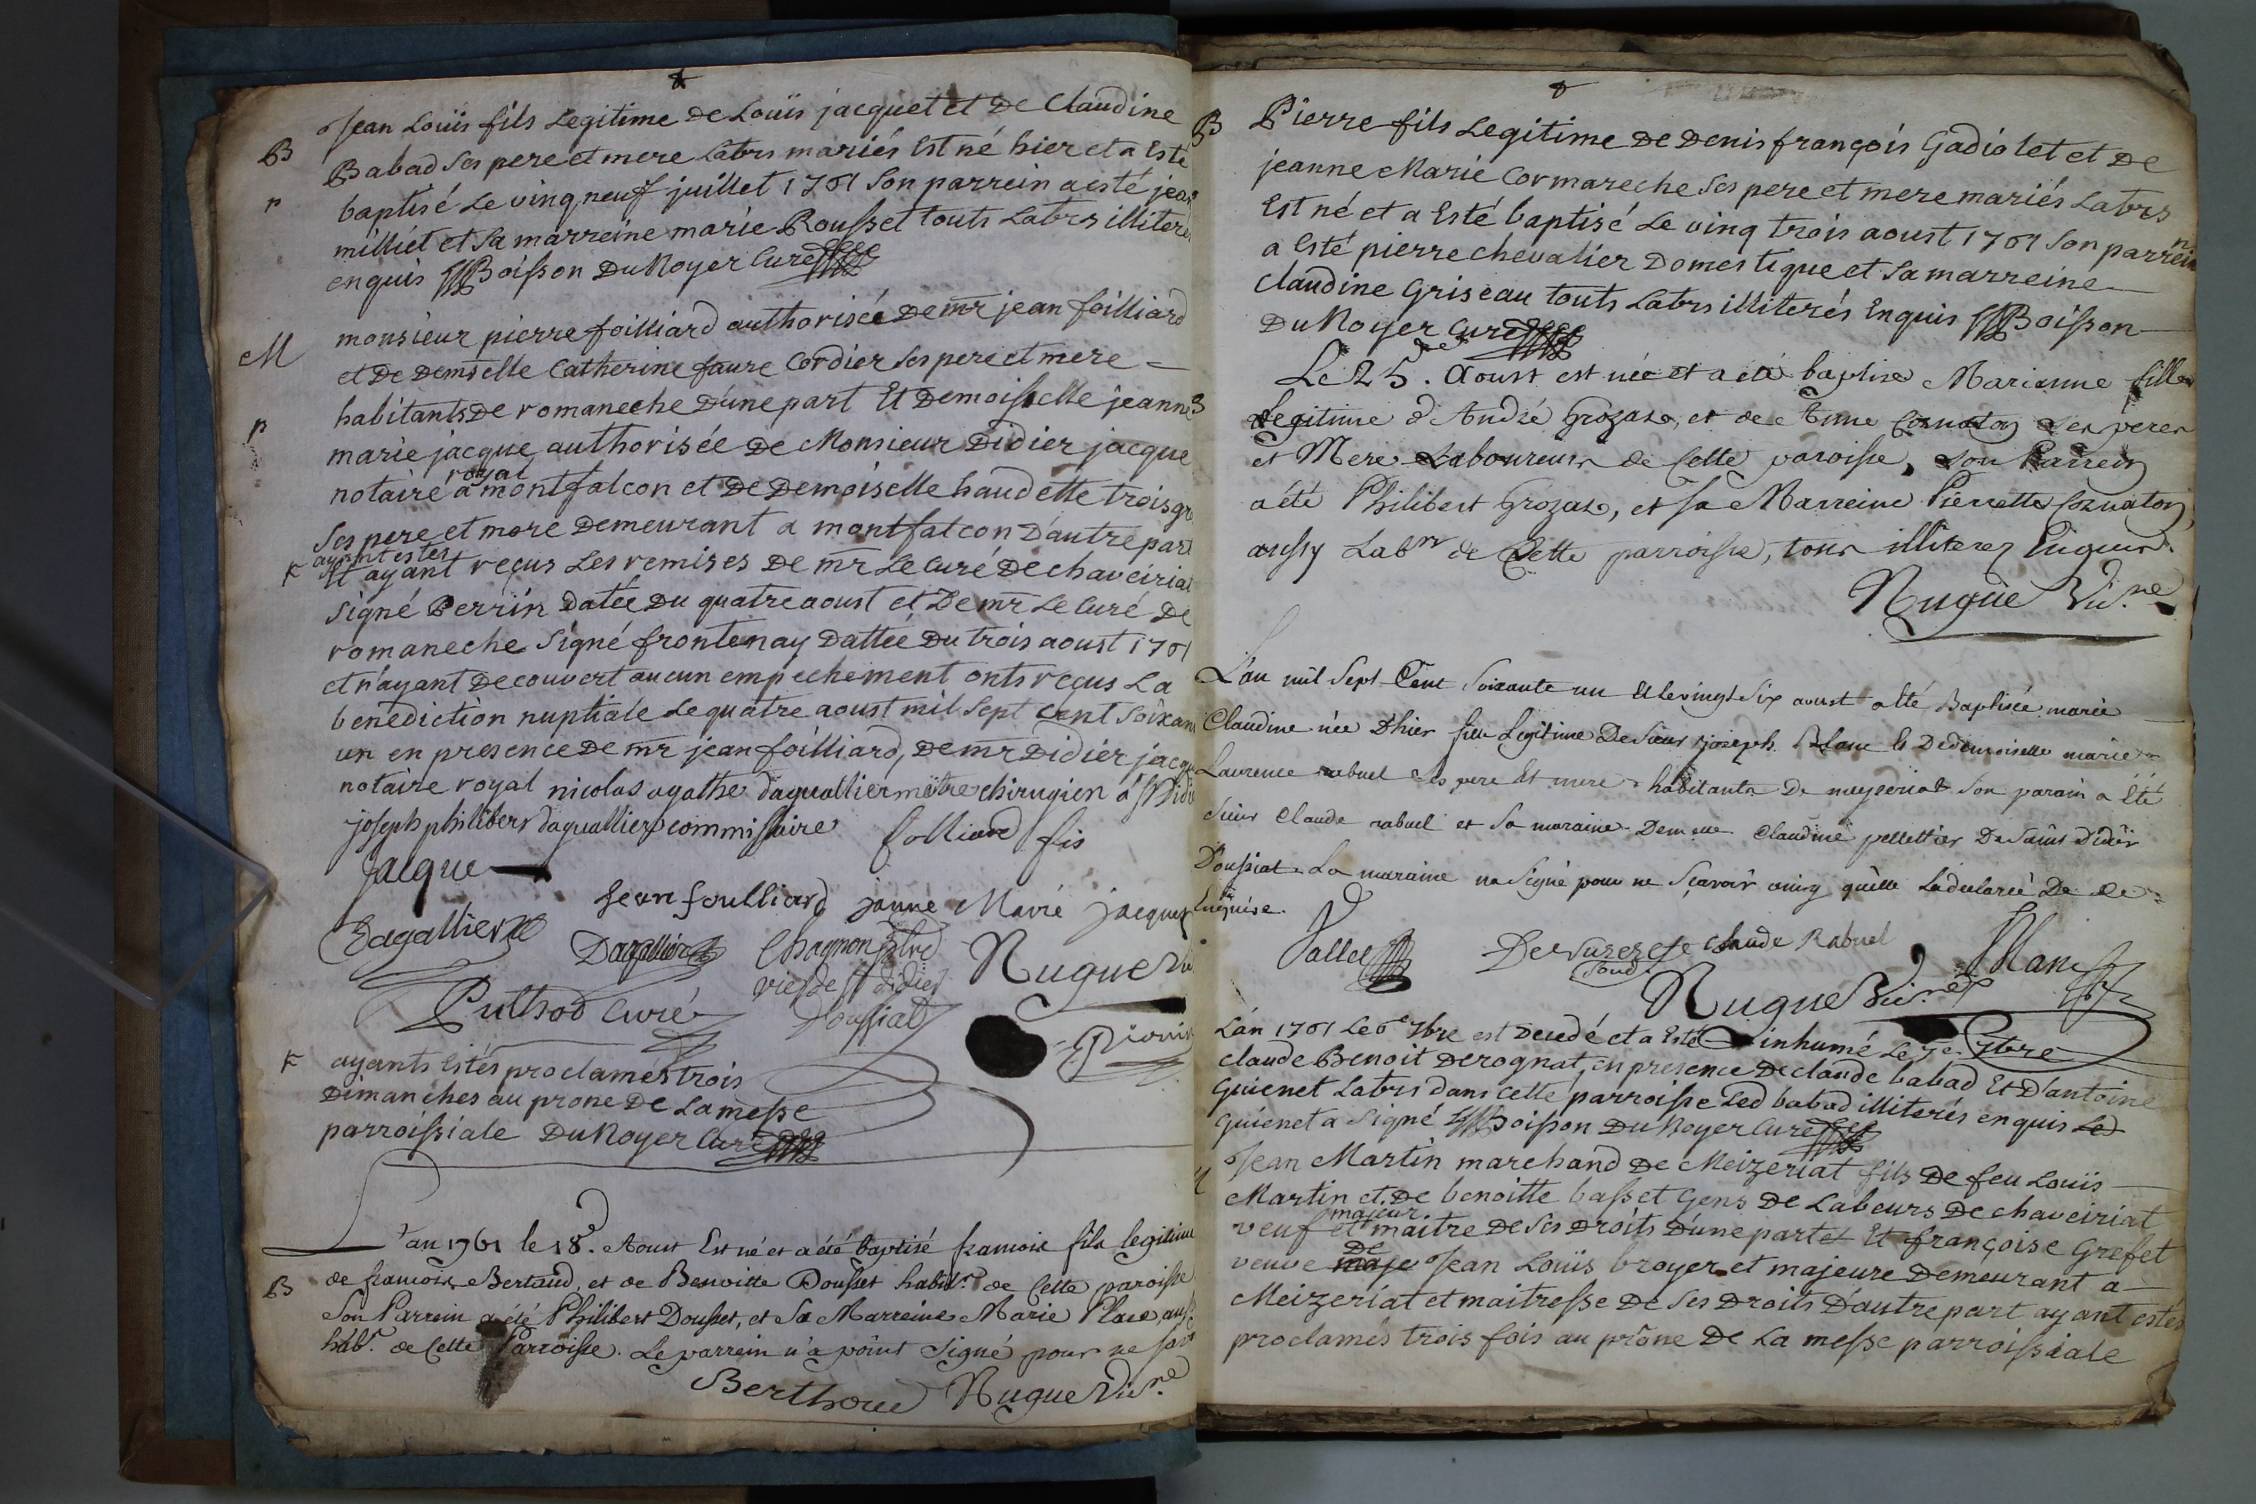 B
Jean Louïs fils Legitime de Louïs jacquet et De Claudine
Babad ses pere et mere Labrs mariés Est né hier et a Esté
baptisé Le vinq neuf juillet 1761 son parrein a esté jean
milliet et sa marreine marie Rousset touts Labrs illiteré
enquis Boisson Du Noyer Curé
M
monsieur pierre foilliard authorisée De mr jean foilliard
et De Demselle Catherine faure Cordier ses pere et mere
habitants De romaneche D'une part Et Demoisselle jeanne
marie jacque authorisée De Monsieur Didier jacque
notaire royal a montfalcon et De Demoiselle haudette trois
ses pere et mere Demeurant a montfalcon D'autre part
ayants estes
Et ayant reçus Les remises De mr Le Curé De chaveiriat
signé Perrin Datée Du quatre aoust et De mr Le Curé De
romaneche signé frontenay Dattée Du trois aoust 1761
et n'ayant Decouvert aucun empechement onts reçus La
benediction nuptiale Le quatre aoust mil sept cent soixante
un en presence De mr jean foilliard, De mr Didier jacque
notaire royal nicolas agathe daguallier maitre chirugien a
joseph philibert daguallier commissaire folliard fis
jacque
Jean foulliard janne Marie jacque
Dagallier Dagallier Chagnon
vic de st didier Nugue
Puthod Curé Doussiat
ayants Estés proclamés trois
Dimanches au prone De La messe
parroissiale Du Noyer Curé
L'an 1761 le 18. Aoust Est né et a été baptisé francois fils legitime
B
de francois Bertaud, et de Benoitte Dousset habts de Cette paroisse
Son Parrein a été Philibert Dousset, et Sa Marreine Marie Place, aussi
hab.t de Cette Parroisse. Le parrein n'a point signé pour ne
Berthoud Nugue Vic.re
B
Pierre fils Legitime De Denis françois Gadiolet et De
jeanne Marie Cormareche ses pere et mere mariés Labrs
Est né et a Esté baptisé Le vinq trois aoust 1761 son parrein
a Esté pierre chevalier Domestique et sa marreine
Claudine Griseau touts Labrs illiterés Enquis Boisson
Du Noyer Curé
Le 25. Aoust est née et a été baptisée Marianne fille
Legitime d'André Grozas, et de Anne Cornaton ses pere
et Mere Laboureurs de Cette paroisse, Son Parrein
a été Philibert Grozas, et Sa Marreine Pierrette Cornaton,
aussy Labrs de Cette parroisse, tous illiterez Enquis.
Nugue Vic.re
L'an mil Sept Cent Soixante un et le vingt Six aoust a été Baptisée marie
Claudine née D'hier fille Legitime De Sieur joseph Blanc et De demoiselle marie
Laurence rabuel ses pere Et mere habitants De meyseriat Son parain a Eté
Sieur Claude rabuel et Sa maraine Demelle Claudine pellettier De Saint didier
D'oussiat La maraine na Signé pour ne Sçavoir ainsy qu'elle La declaré De ce
Enquise.
Vallet Claude Rabuel Blanc
Nugue Vic.re
L'an 1761 Le 6e 7bre est Decedé et a Esté inhumé Le 7e 7bre
claude Benoit Derognat, en presence De claude babad Et D'antoine
Guienet Labrs dans cette parroisse Led babad illiterés enquis Led
Guienet a signé Boisson Du Noyer Curé
Jean Martin marchand De Meizeriat fils De feu Louïs
Martin et De benoitte basset Gens De Labeurs De chaveiriat
majeur
veuf et maitre De ses Droits D'une part Et françoise Grefet
veuve De Jean Louïs broyer et majeure Demeurant a
Meizeriat et maitresse De ses Droits D'autre part ayant estés
proclamés trois fois au prône De La messe parroissiale